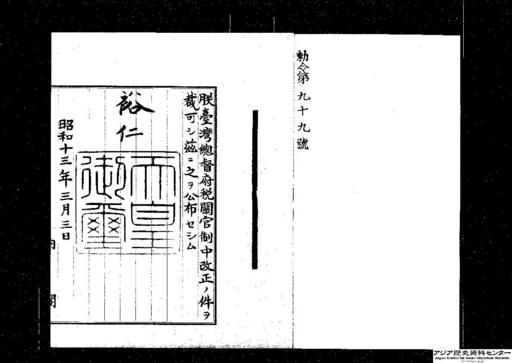 勅令第九十九號
朕臺灣總督府税關官制中改正ノ件ヲ
裁可シ茲ニ之ヲ公布セシム
裕仁
天皇御璽
昭和十三年三月三日
内閣
アジア歴史資料センター
Japan Center for Asian Historical Records